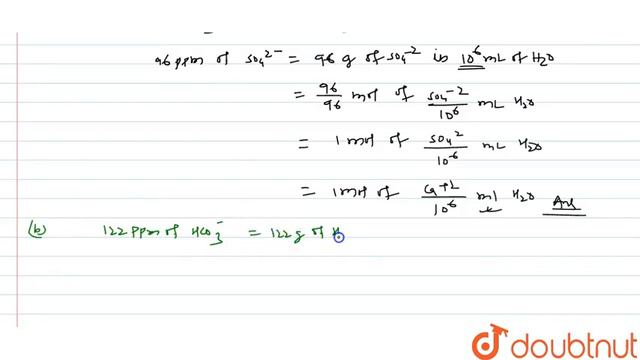 96 ppm of SO₄²⁻ = 96 g of SO₄⁻² in 10⁶ mL of H₂O
= 96/96 mol of SO₄⁻²/10⁶ mL H₂O
= 1 mol of SO₄²/10⁻⁶ mL H₂O
= 1 mol of Ca+2/10⁶ ml H₂O Ans
(b) 122 ppm of HCO₃⁻ = 122 g of H
doubtnut